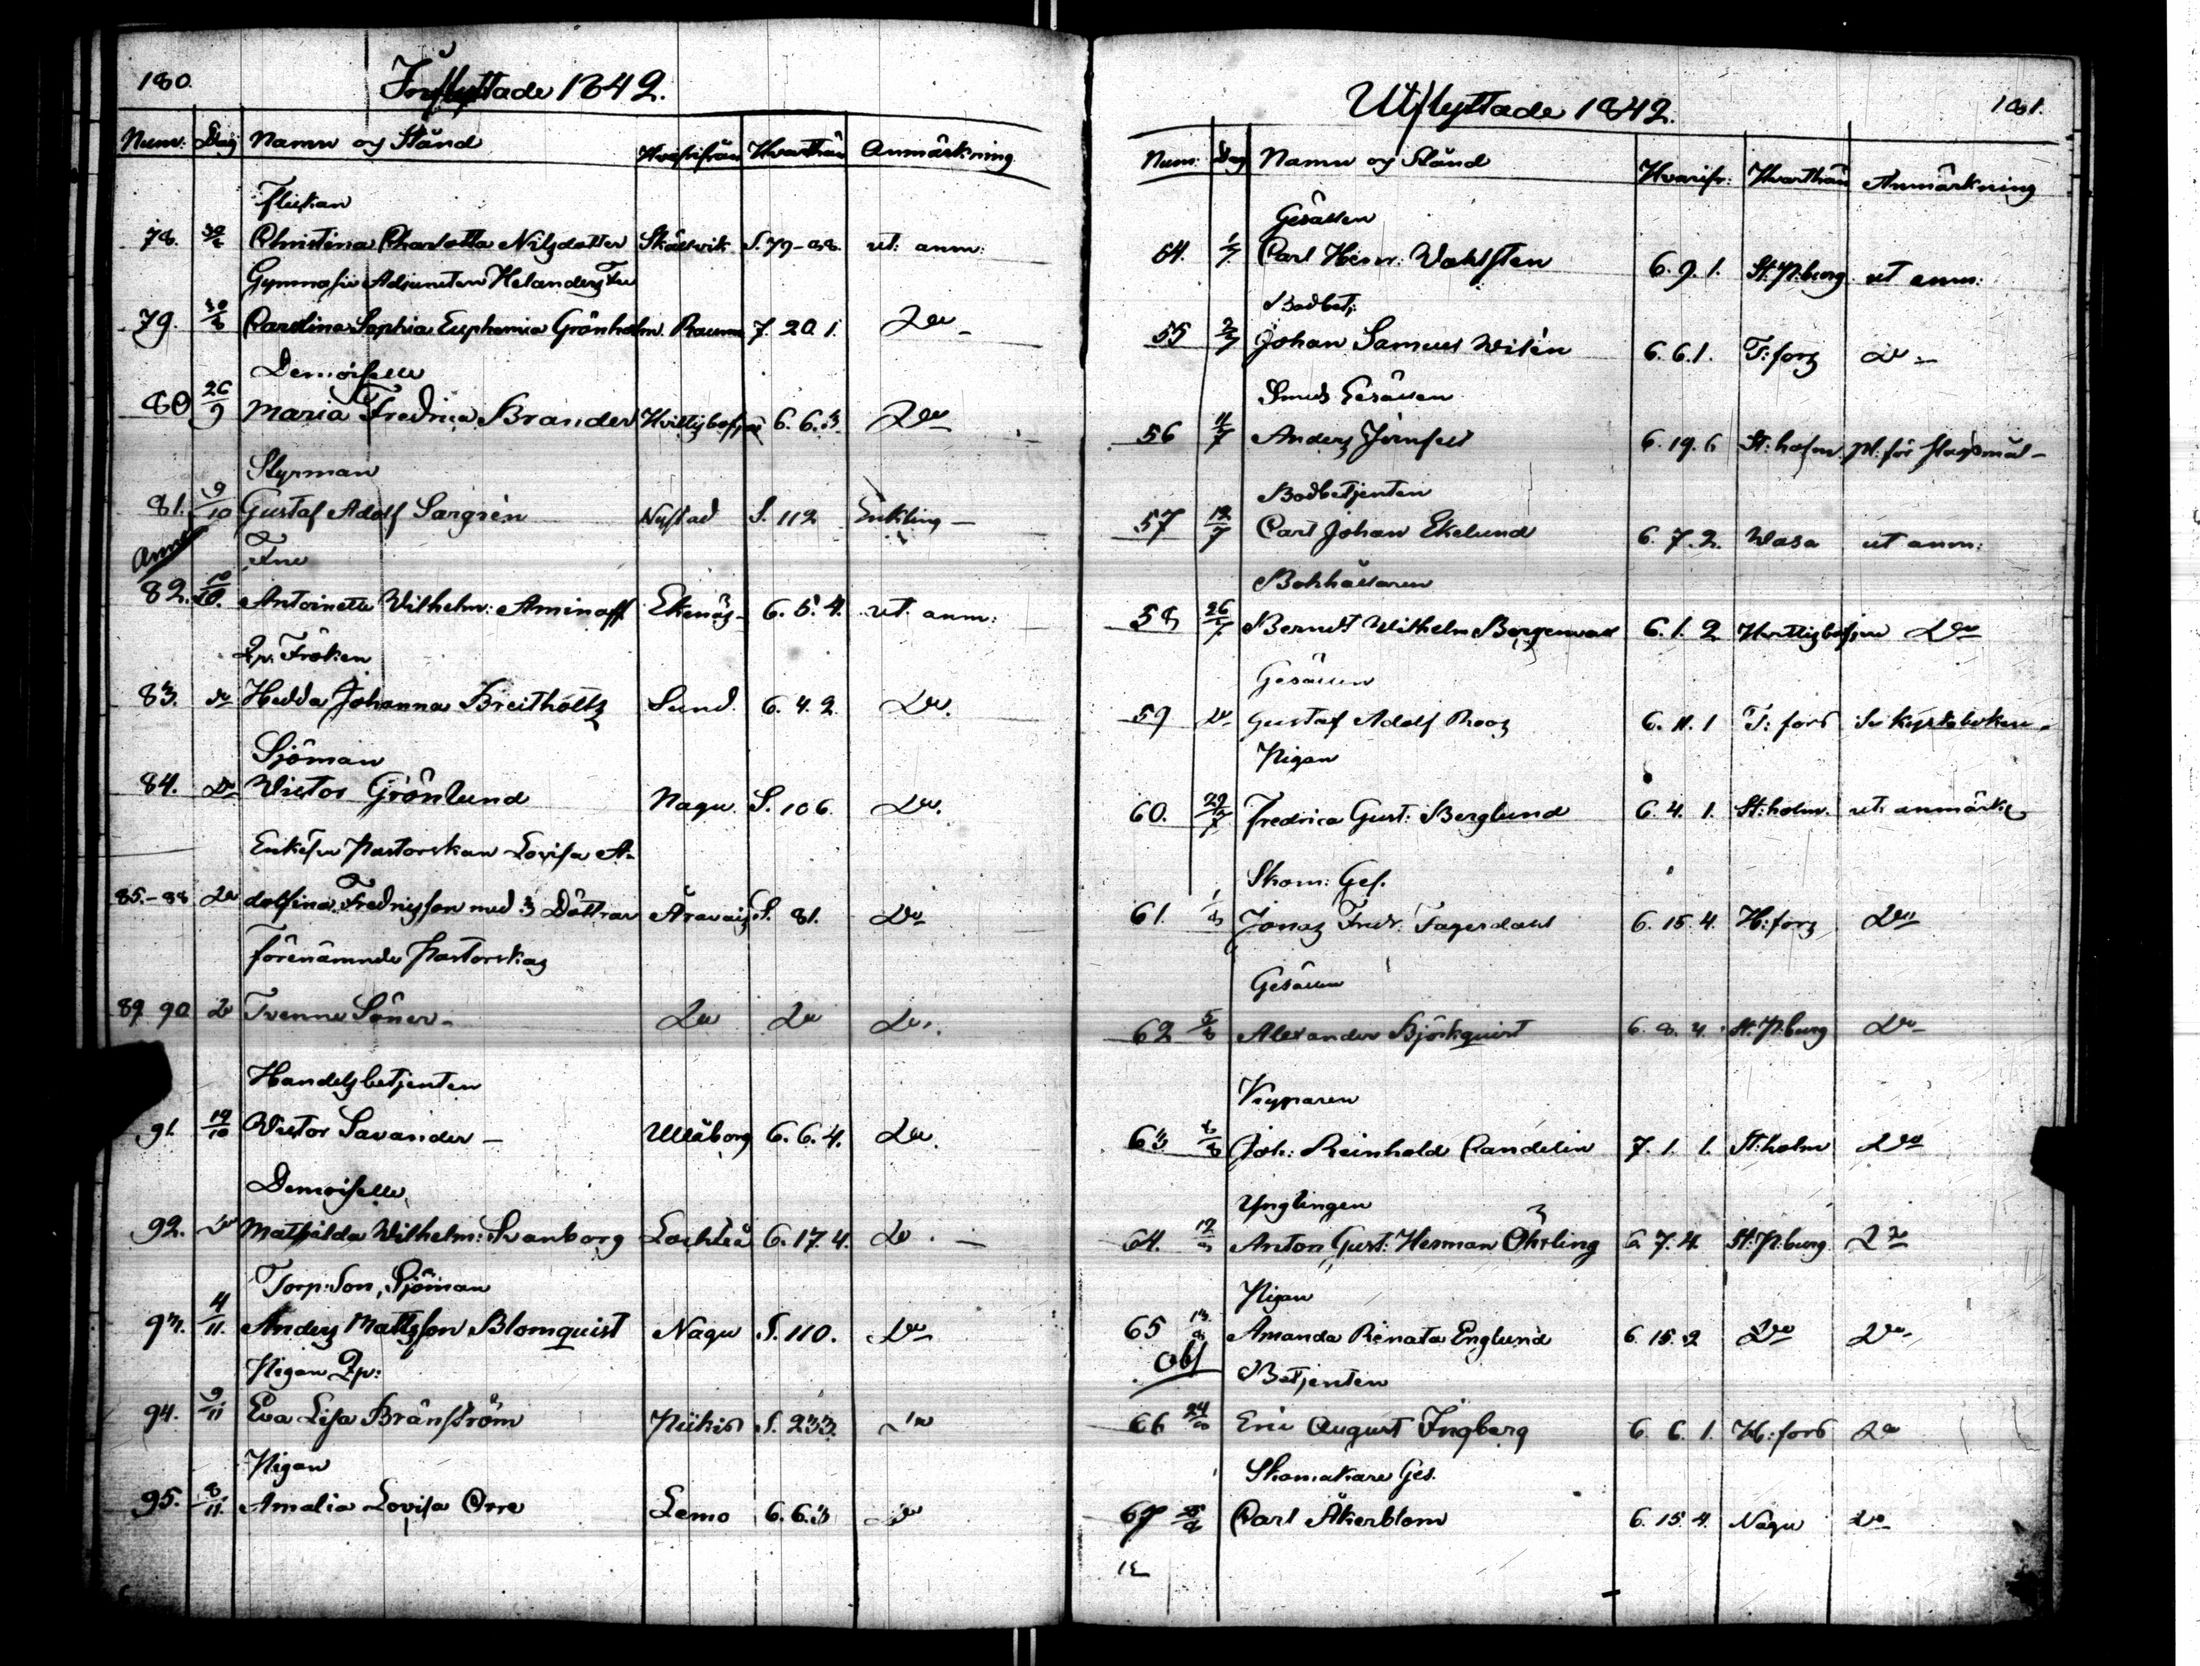 180.
Inflyttade 1842.
Num: Dag Namn og Stånd Hvarifrån Hvarthän Anmärkning
Flickan
78. 30/6 Christina Charlotta Nilsdotter S. 79-88. ut: anm:
Gymnasie Adjuncten Helanders Fru
79. Carolina Sophia Euphemia Grönholm Raumo 7. 20. 1. Do
Demoiselle
80 26/9 Maria Fredrica Brander Hvittisbofjärd 6. 6. 3. Do
Styrman
81. 9/10 Gustaf Adolf Sargrén Nystad S. 112 Enkling
Anm
Fru
82. 10/10. Antoinette Wilhelm: Aminoff Ekenäs 6. 5. 4. ut. anm:
Fröken
83. do Hedda Johanna Breitholtz Sund 6. 4. 2. Do.
Sjöman
84. Do Victor Grönlund Nagu S. 106. Do.
Enkefru Pastorskan Lovisa A-
85.-88 Do dolfina Fredrigsson med 3 Döttrar S. 81. Do
förenämnde Pastorskas
89 90 Do Tvenne Söner Do Do Do.
Handelsbetjenten
91. 19/10 Victor Savander Uleåborg 6. 6. 4. Do.
Demoiselle
92. Do Mathilda Wilhelm: Svanborg Lochteå 6. 17. 4. Do.
Torp: Son, Sjöman
93. 4/11. Anders Mattsson Blomquist Nagu S. 110. Do
Pigan Qp:
94. 9/11 Eva Lisa Bränström Piikis S. 233. Do
Pigan
95. 8/11. Amalia Lovisa Orre Lemo 6. 6. 3 Do
Utflyttade 1842.
181.
Num: Dag Namn og Stånd Hvarifr: Hvarthän Anmärkning
Gesällen
54. 1/7 Carl Henr: Wahlsten 6. 9. 1. St: P:burg ut anm:
Bodbetj:
55 2/7 Johan Samuel Wisén 6. 6. 1. T:fors Do
Smeds Gesällen
56 11/7 Anders Jernfelt 6. 19. 6 St:holm
Bodbetjenten
57 12/7 Carl Johan Ekelund 6. 7. 2. Wasa ut anm:
Bokhållaren
58 26/7 Berndt Wilhelm Borgenwall 6. 1. 2 Hvittisbofjärd Do
Gesällen
59 Do Gustaf Adolf Roos 6. 11. 1 T: fors Se Kyrkoboken
Pigan
60. 29/7 Fredrica Gust: Berglund 6. 4. 1. St:holm. ut: anmärk:
Skom: Ges.
61. 1/8 Jonas Fredr: Fagerdahl 6. 15. 4. H:fors Do
Gesällen
62 5/8 Alexander Björkquist 6. 8. 4. St: P:burg Do
Kyparen
63 Joh: Reinhold Candelin 7. 1. 1. St:holm Do
Ynglingen
64. 12/8 Anton Gust: Herman Öhrling 6. 7. 4. St: P:burg Do
Pigan
65 13/8 Amanda Renata Englund 6. 15. 2 Do Do
Obs
Betjenten
66 24/8 Eric August Ingberg 6. 6. 1. H:fors Do
Skomakare Ges.
67 Carl Åkerblom 6. 15. 4. Nagu Do